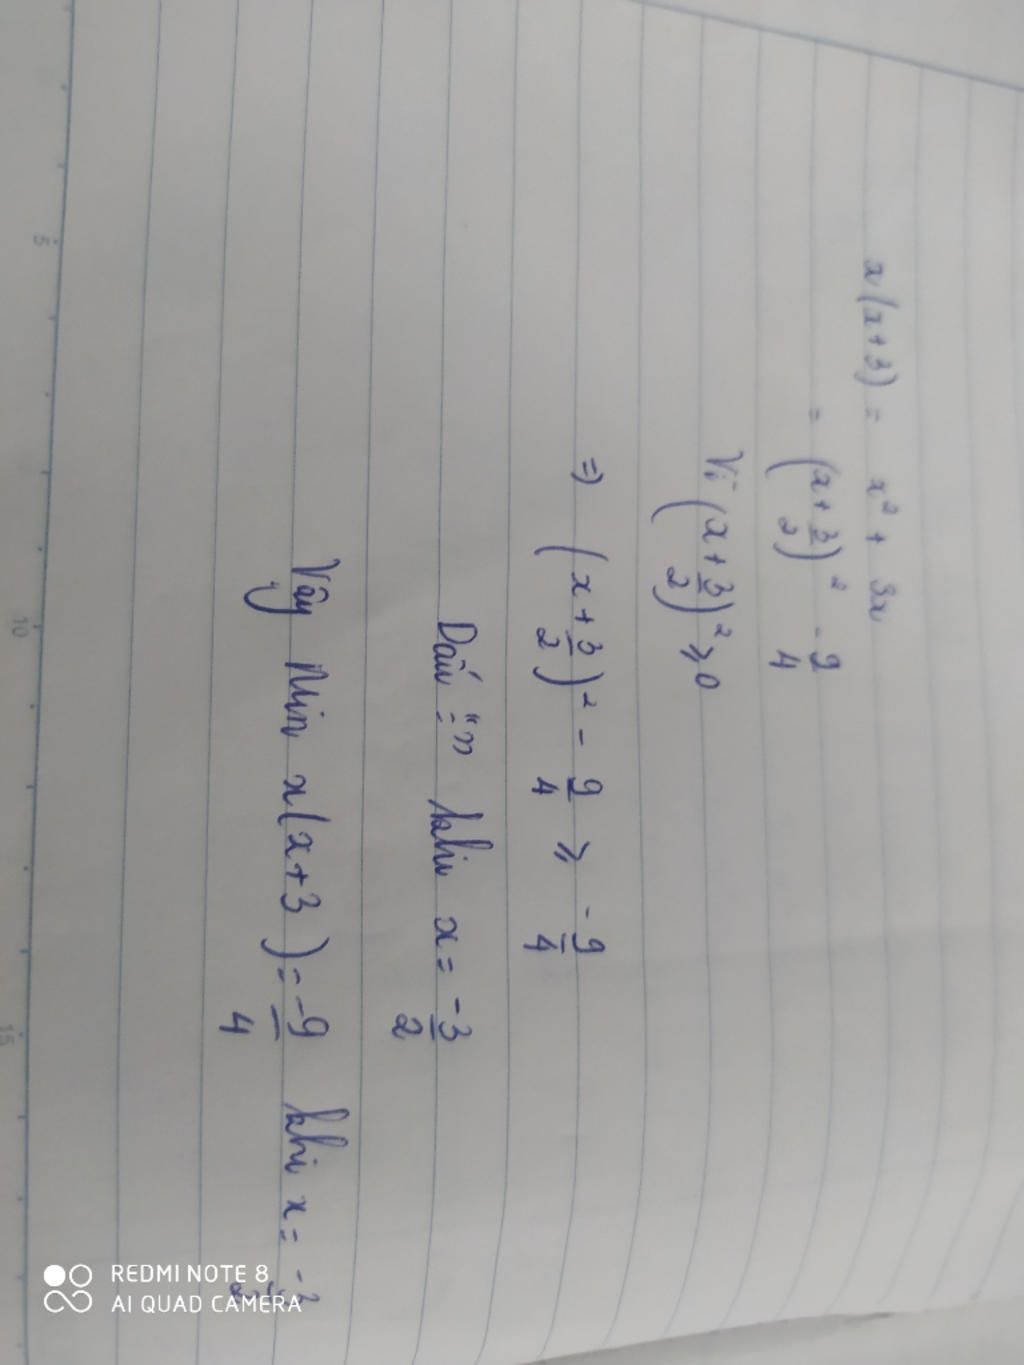 x(x+3) = x² + 3x
= (x+3/2)² - 9/4
Vì (x+3/2)² ⩾ 0
=> (x+3/2)² - 9/4 ⩾ -9/4
Dấu "=" khi x = -3/2
Vậy Min x(x+3) = -9/4 khi x = -3/2
5
10
15
REDMI NOTE 8
AI QUAD CAMERA